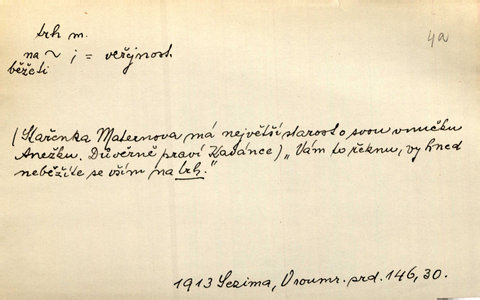 trh m.
4a
na ~ ; = veřejnost.
běžeti
(Stařenka Maternova má největší starost o svou vnučku
Anežku. Důvěrně praví Kadánce) „Vám to řeknu, vy hned
neběžíte se vším na trh."
1913 Sezima, V soumr. srd. 146, 30.